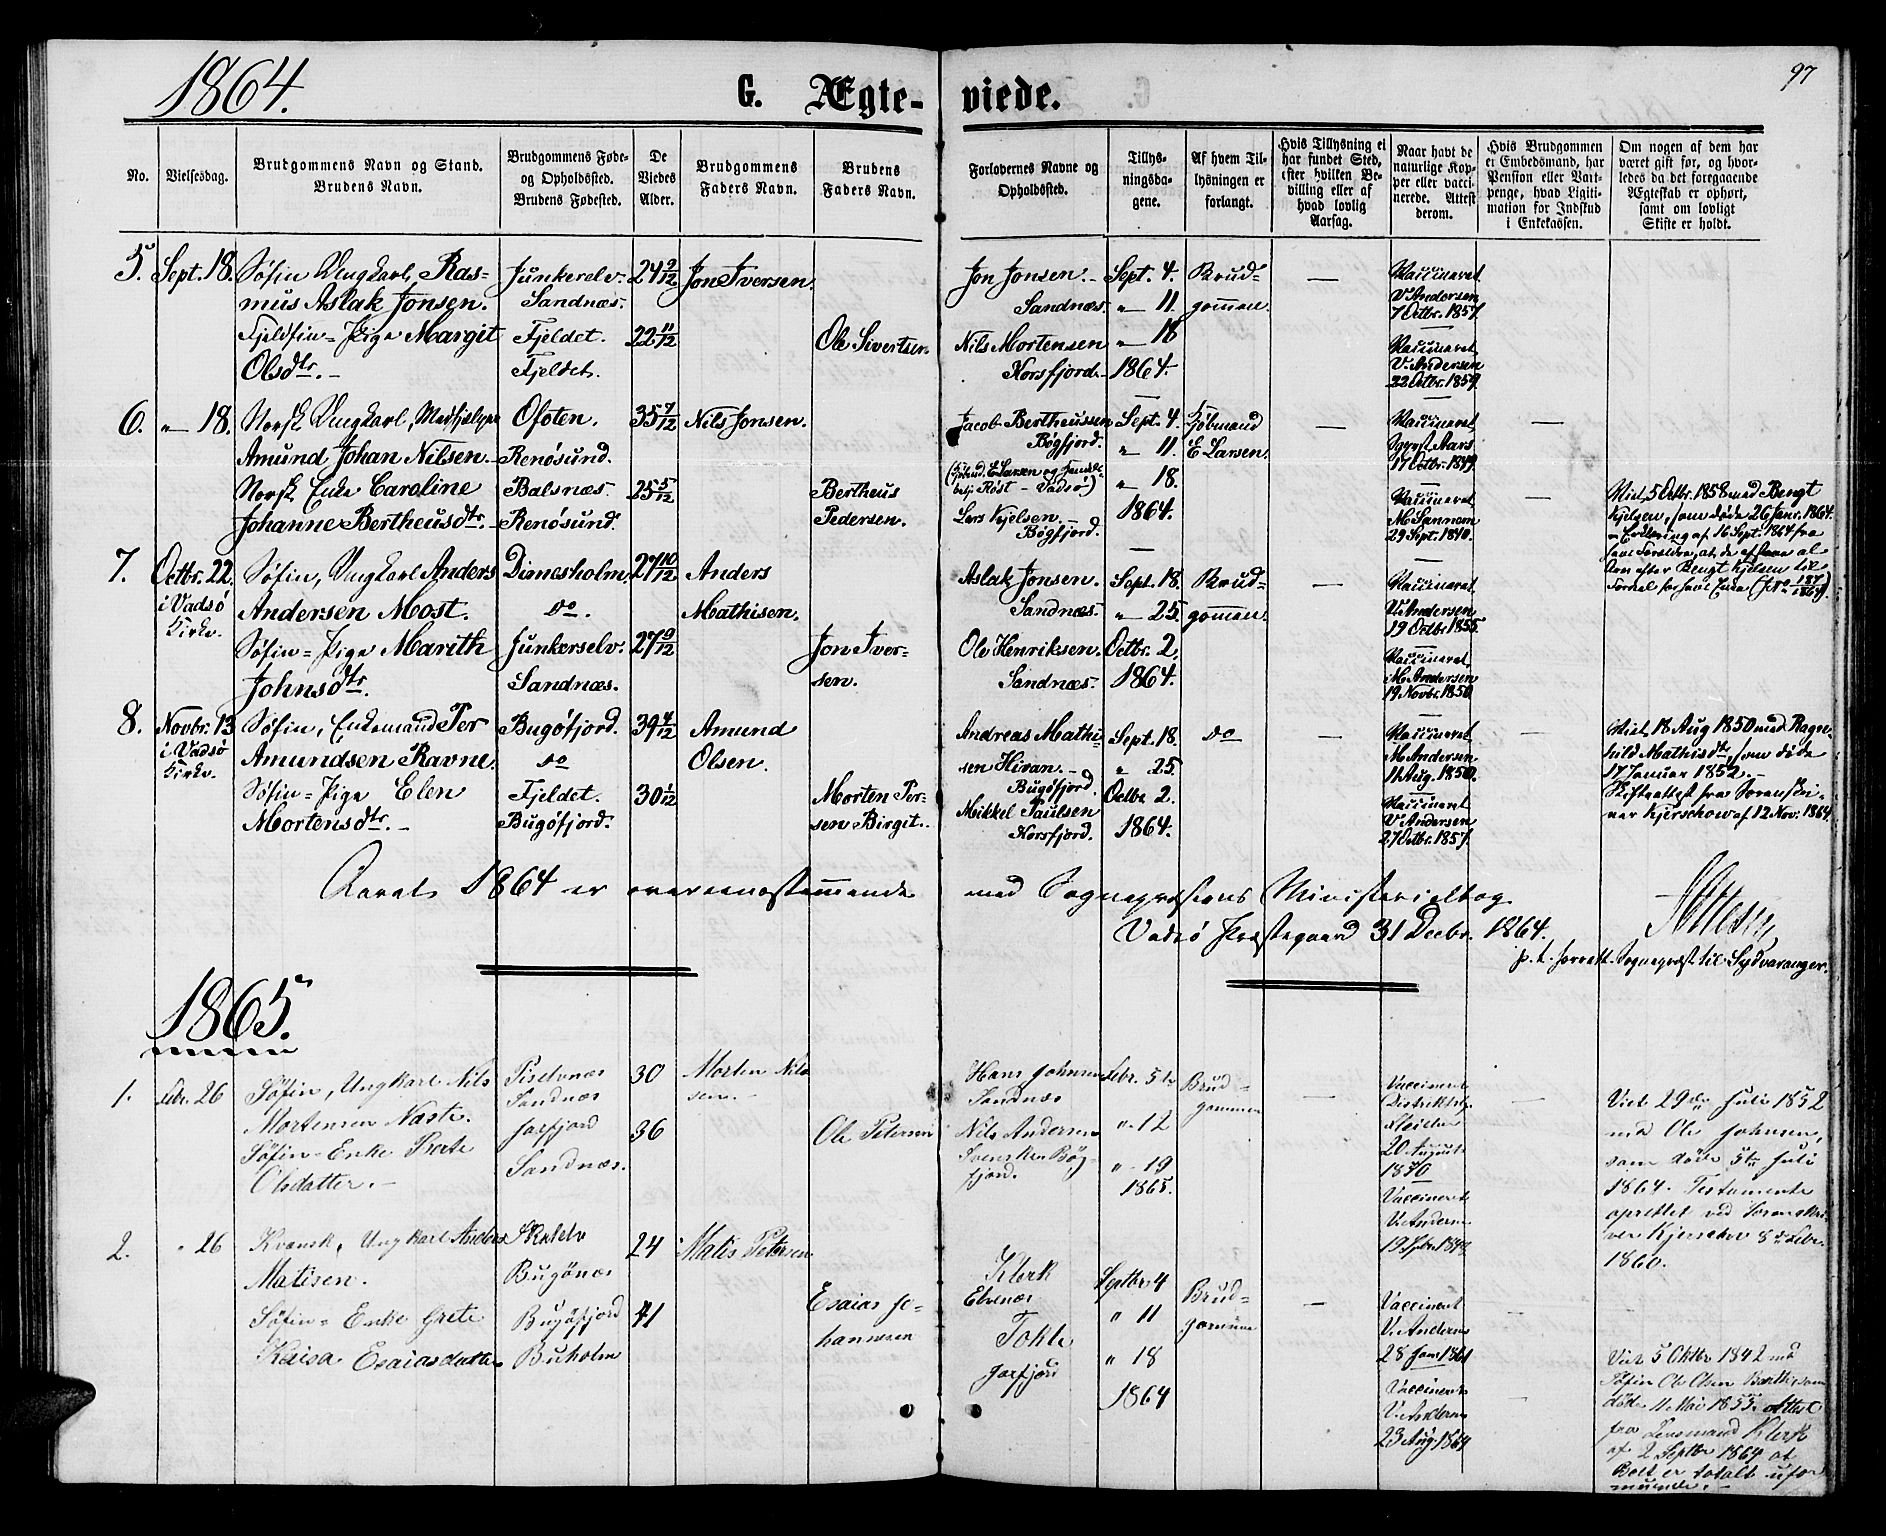 1864.
G. Ægte-
viede.
97
No.
Vielsesdag.
Brudgommens Navn og Stand.
Brudens Navn.
Brudgommens Føde-
og Opholdssted.
Brudens Fødested.
De
Viedes
Alder.
Brudgommens
Faders Navn.
Brudens
Faders Navn.
Forlovernes Navne og
Opholdssted.
Tillys-
ningsda-
gene.
Af hvem Til-
lysningen er
forlangt.
Hvis Tillysning ei
har fundet Sted,
efter hvilken Be-
villing eller af
hvad lovlig
Aarsag.
Naar havt de
naturlige Kop-
per eller vacci-
nerede. Attest
derom.
Hvis Brudgommen
er Embedsmand, har
Pension eller Vart-
penge, hvad Ligiti-
mation for Indskud
i Enkekassen.
Om nogen af dem har
været gift før, og hvor-
ledes da det foregaaende
Ægteskab er ophørt,
samt om lovligt
Skifte er holdt.
5.
Sept. 18.
Søfin Ungkarl Ras-
mus Aslak Jonsen.
Fjeldfin=Pige Margit
Olsdtr. -
Junkerelv.
Sandnæs.
Fjeldet.
Fjeldet.
24 9/12
22 11/12
Jon Iversen.
Ole Sivertsen.
Jon Jonsen. -
Sandnæs.
Nils Mortensen
Korsfjord.
Sept. 4.
" 11.
" 18
1864.
Brud-
gommen.
—
Vaccineret
V. Andersen
7 Octbr. 1857.
Vaccineret
V. Andersen
22 Octbr. 1857.
6.
" 18.
Norsk Ungkarl, Medhjelper
Amund Johan Nilsen.
Norsk Enke Caroline
Johanne Bertheusdtr.
Ofoten.
Renøsund.
Balsnæs.
Renøsund.
35 7/12
25 5/12
Nils Jonsen.
Bertheus
Pedersen.
Jacob Bertheussen
Bøgfjord.
(Kjøbmd. E Larsen og
Røst - Vadsø)
Lars Kjelsen.
Bøgfjord.
Sept. 4.
" 11.
" 18.
1864.
Kjøbmand
E Larsen.
—
Vaccineret
Sgprst Aars
17 Octbr. 1849.
Vaccineret
M. Sannem
29 Sept. 1840.
—
—
Viet 5 Octbr. 1858 med Bengt
Kjelsen, som døde 26 Janr. 1864.
Erklæring af 16 Sept. 1864 fra
7.
Octbr. 22.
i Vadsø
Kirke.
Søfin, Ungkarl Anders
Andersen Most.
Søfin=Pige Marith
Johnsdtr.
Dirnesholm.
do.
Junkerselv.
Sandnæs.
27 10/12
27 9/12
Anders
Mathisen.
Jon Iver-
sen.
Aslak Jonsen.
Sandnæs.
Ole Henriksen.
Sandnæs.
Sept. 18.
" 25.
Octbr. 2.
1864.
Brud-
gommen.
—
Vaccineret
V. Andersen
19 Octbr 1855.
Vaccineret
M. Andersen
19 Novbr. 1850
8.
Novbr. 13
i Vadsø
Kirke.
Søfin, Enkemand Per
Amundsen Ravne.
Søfin=Pige Elen
Mortensdtr. -
Bugøfjord.
do
Fjeldet.
Bugøfjord.
39 4/12
30 1/12
Amund
Olsen.
Morten Per-
sen Birgit.
Andreas Mathi-
sen Hivan. -
Bugøfjord.
Mikkel Paulsen
Korsfjord.
Sept. 18.
" 25.
Octbr 2.
1864.
do
—
Vaccineret
M. Andersen
11 Aug. 1850.
Vaccineret
V. Andersen
27 Octbr. 1857.
—
Viet 18 Aug 1850 med Ragn-
hild Mathisdtr, som døde
17 Januar 1852. -
Skifteattest fra Sorenskri-
ver Kjerschow af 12 Nov. 1864
Aaret 1864 er overeensstemmende
med Sognepræstens Ministerialbog
Vadsø Præstegaard 31 Decbr. 1864.
p. t. forrett. Sognepræst til Sydvaranger.
1865.
1.
Febr. 26
Søfin, Ungkarl Nils
Mortensen Naste.
Søfin=Enke Berte
Olsdatter. -
Piselvnæs
Sandnæs
Jarfjord
Sandnæs.
30
36
Morten Nils
sen.
Ole Petersen
Hans Johnsen
Sandnæs
Nils Andersen
Svensken Bøg-
fjord.
Febr. 5te
" 12
" 19
1865.
Brud-
gommen
—
Vaccineret
20 August
Vaccineret
V. Andersen
—
Viet 29de Juli 1852
med Ole Johnsen,
som døde 5te Juli
1864. Testamente
oprettet ved Sorenskri-
ver Kjerschow 8de Febr.
1860.
2.
" 26
Kvænsk, Ungkarl Anders
Matisen.
Søfin=Enke Grete
Kaisa Esaiasdatter
Bugønæs
Bugøfjord
Buholm
24
41
Matis Petersen
Esaias Jo-
hannesen
Klerk
Elvenæs
Tokle
Jarfjord
Septbr 4
" 11
" 18
1864
Brud-
gommen
—
Vaccineret
V. Andersen
28 Janr 1861
Vaccineret
V. Andersen
23 Aug. 1864
—
—
Viet 5 Oktbr 1842 med
Søfin Ole Olsen som
døde 11 Mai 1855. Attest
fra Lensmand Klerk
af 2 Septbr 1864 at
Boet er totalt ufor
muende. -